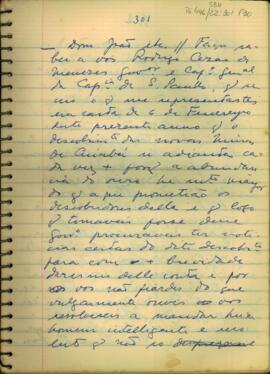 301
— Dom João etc. // Faço sa-
ber a vos Rodrigo Cezar de
Menezes Govor e Capm General
da Capnia de S. Paulo, q se
vio o q me representastes
na carta de 6 de Fevereyro
deste prezente anno q o
descobrimto das novas Minas
de Cuiabá se adianta ca-
da vez + por q a abundan-
cia do ouro he mto mayor
do q a que prometião os
descobridores della e q logo
q tomaveis posse desse
Govo procuraveis ter noti-
cias certas do dito descobrto
para com + brevidade
dares me delle conta e por
vos não fiardes do que
vulgarmente ouvies vos
resolvereis a mandar hum
homem intelligente e
q não só